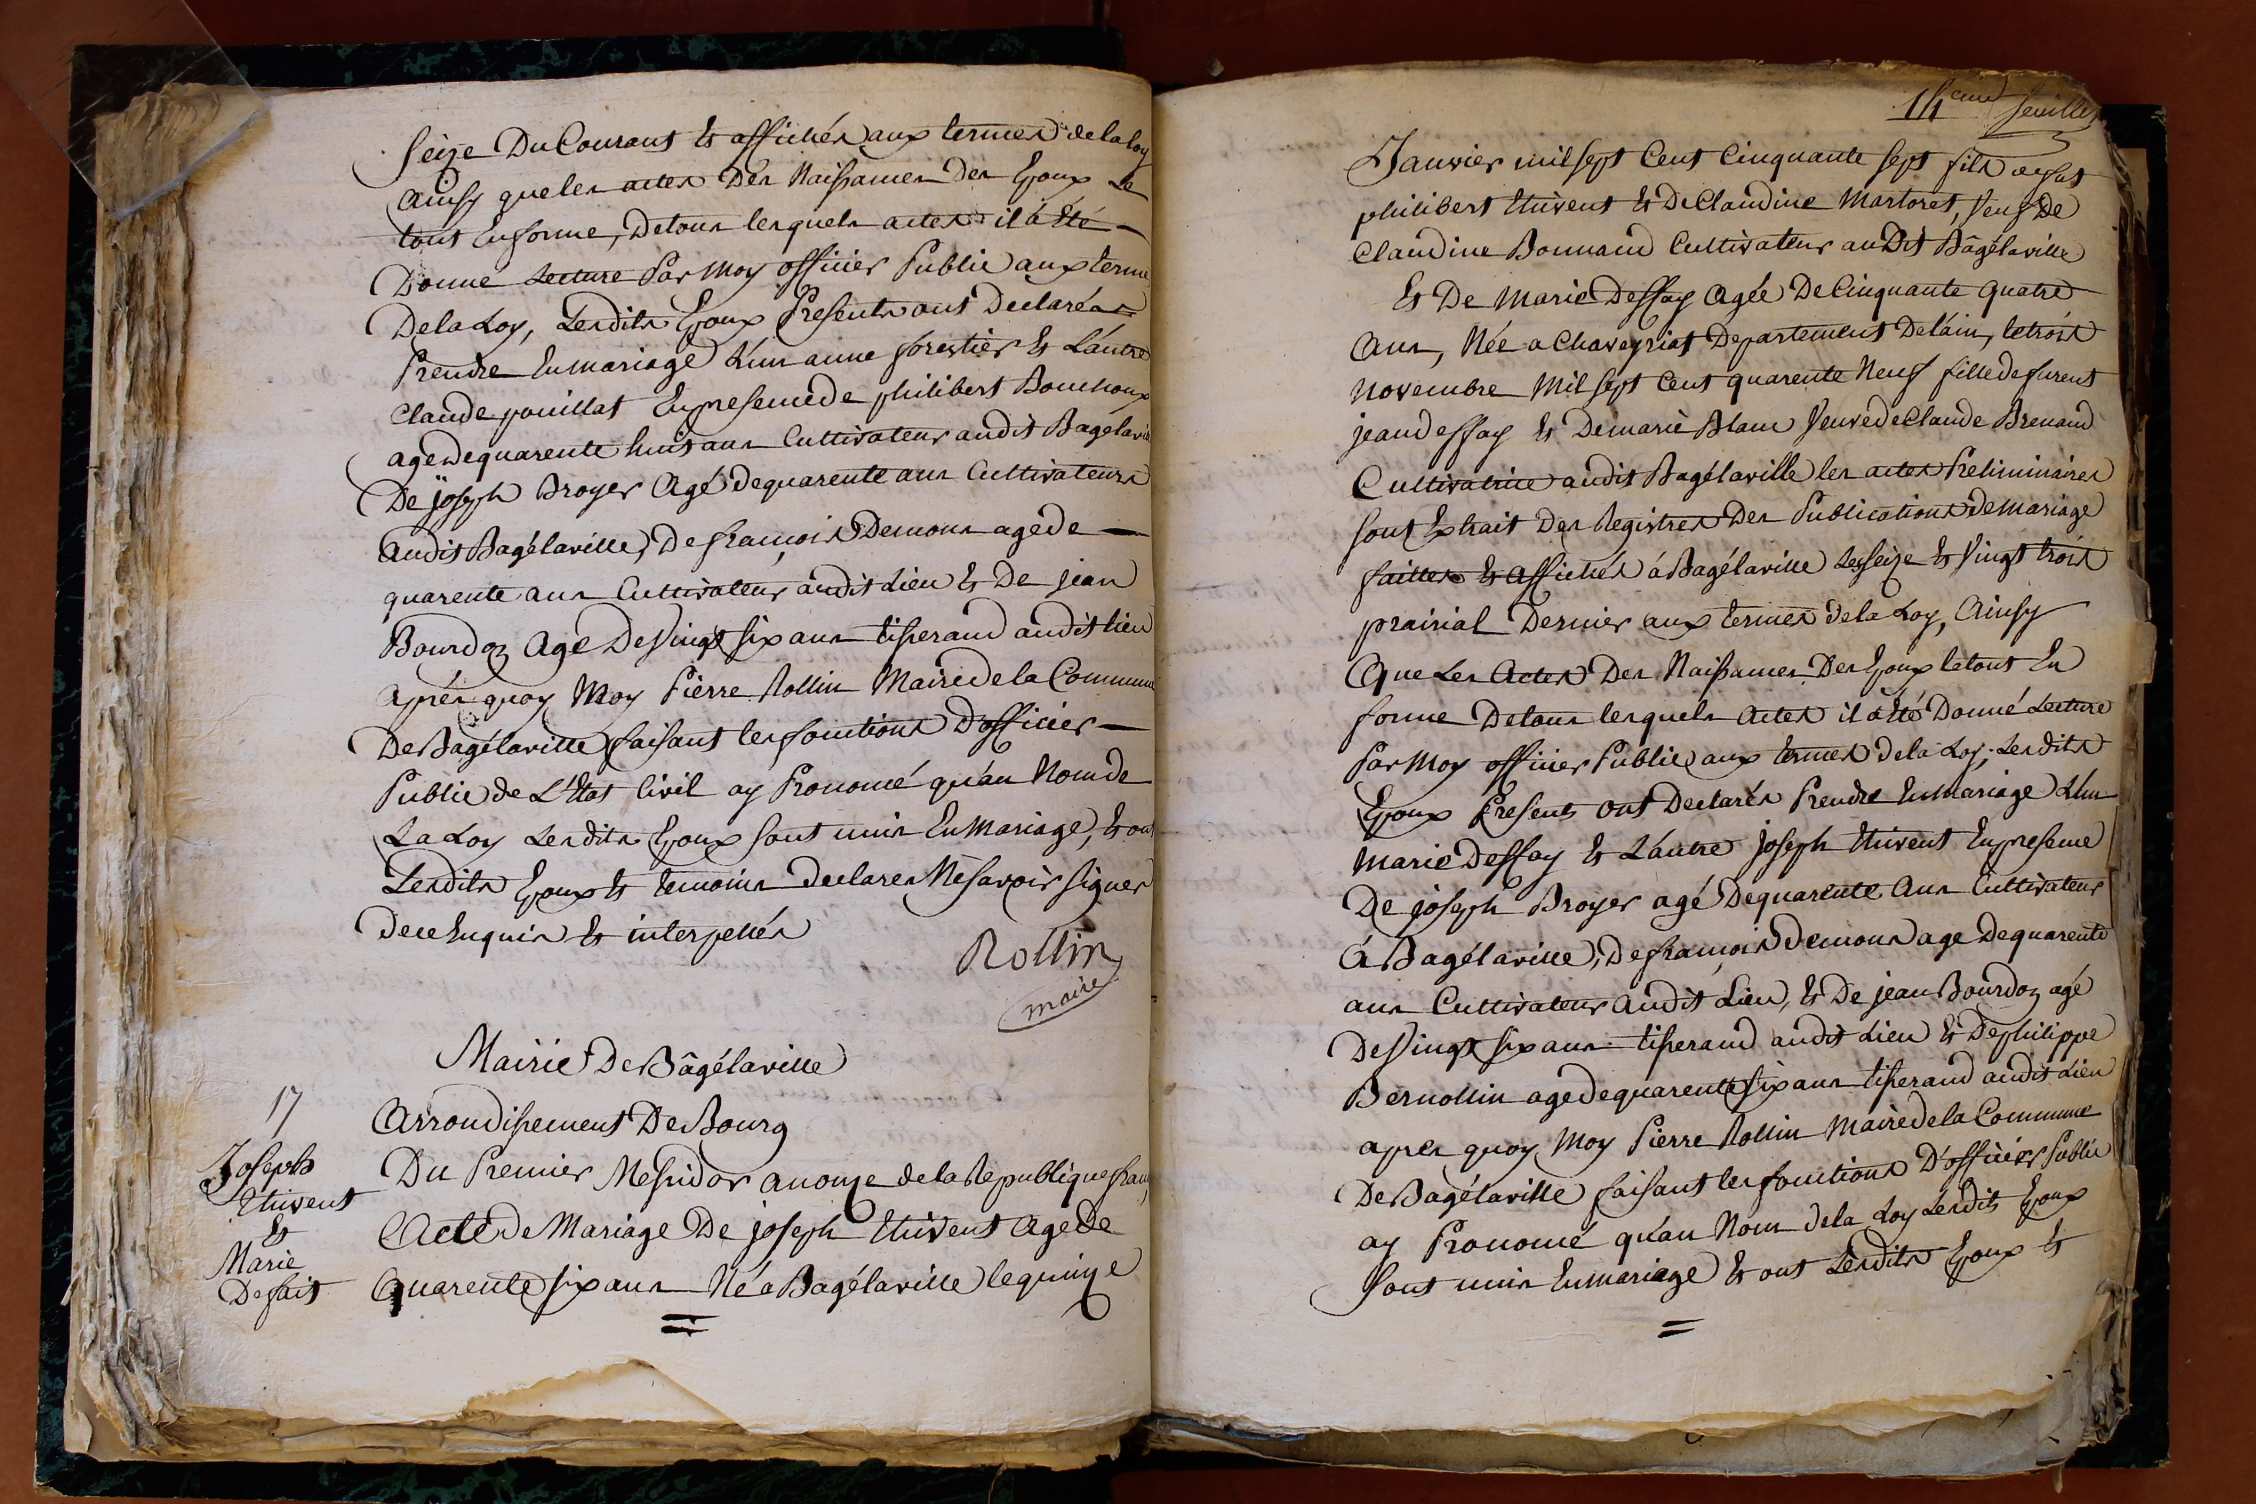 Seize Du Courant Et affichés aux termes de la loy
Ainsy que les actes Des Naissances Des Epoux Le
tout En forme, De tous lesquels actes il á Eté —
Donné Lecture Par Moy officier Public aux terme
De la Loy, Lesdits Epoux Presents ont Declarés
Prendre En mariage L'un anne forestier Et L'autre
Claude pouillat En presence de philibert Bouchoux
agé de quarente huit ans Cultivateur audit Bagélaville
De joseph Broyer Agé de quarente ans Cultivateurs
Audit Bagélaville, De françois Demons agé de —
quarente ans Cultivateur audit Lieu Et De jean
Bourdon Agé De Vingt six ans tisserand audit lieu
Aprés quoy Moy Pierre Rollin Maire de la Commune
De Bagélaville faisant les fonctions D'officier —
Public de L'Etat Civil ay Prononcé qu'au Nom de
La Loy Lesdits Epoux sont unis En Mariage, Et ont
Lesdits Epoux Et temoins declares Ne savoir signer
de ce Enquis Et interpellés
Rollin
maire
Mairie De Bâgélaville
17
Arrondissement De Bourg
Joseph
Thivent
Et
Marie
Defait
Du Premier Messidor an onze de la Republique fran
Acte de Mariage De joseph Thivent Agé De
Quarente six ans Né a Bagélaville le quinze
14eme feuillet
Janvier mil sept Cent Cinquante sept fils de fut
philibert Thivent Et De Claudine Martoret, Veuf De
Claudine Bonnand Cultivateur au Dit Bâgélaville
Et De Marie Deffay Agée De Cinquante quatre
Ans, Née a Chaveyriat Departement De l'ain, le trois
Novembre Mil sept Cent quarente Neuf fille de furent
jean deffay Et De marie Blanc Veuve de Claude Brenand
Cultivatrice audit Bagélaville les actes Preliminaires
sont Extrait Des Registres Des Publications de mariage
faittes Et Affichés á Bagélaville Les seize Et Vingt trois
prairial Dernier aux termes de la Loy, Ainsy
Que Les Actes Des Naissances Des Epoux le tout En
forme De tous lesquels Actes il a Eté Donné Lecture
Par Moy officier Public aux termes de la Loy, Lesdits
Epoux Presents ont Declarés Prendre En mariage L'un
Marie Deffay Et L'autre joseph Thivent En presence
De joseph Broyer agé De quarente Ans Cultivateur
á Bagélaville, De françois demons agé De quarente
ans Cultivateur audit Lieu, Et De jean Bourdon agé
De Vingt six ans tisserand audit Lieu Et De philippe
Bernollin agé de quarente six ans tisserand audit Lieu
apres quoy Moy Pierre Rollin Maire de la Commune
De Bagélaville faisant les fonctions D'officier Public
ay Prononcé qu'au Nom de la Loy Lesdits Epoux
sont unis En mariage Et ont Lesdits Epoux Et